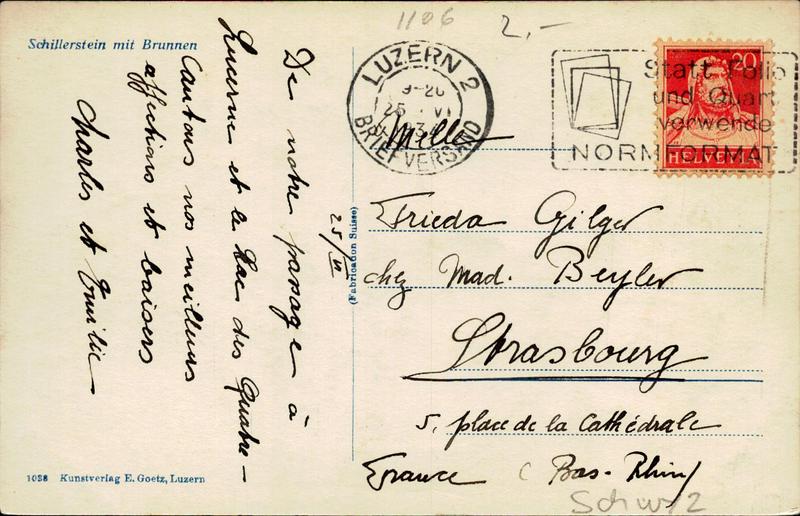 1106
2,-
Schillerstein mit Brunnen
De notre passage à
Lucerne et le Lac des Quatre-
Cantons nos meilleurs
affections et baisers
Charles et Emilie
25/VI
(Fabrication Suisse)
LUZERN 2
25. VI
BRIEFVERSAND
Statt Folio
und Quart
verwende
NORMFORMAT
20
HELVETIA
Melle
Frieda Gilger
chez Mad. Beyler
Strasbourg
5, place de la Cathédrale
France (Bas-Rhin)
1038 Kunstverlag E. Goetz, Luzern